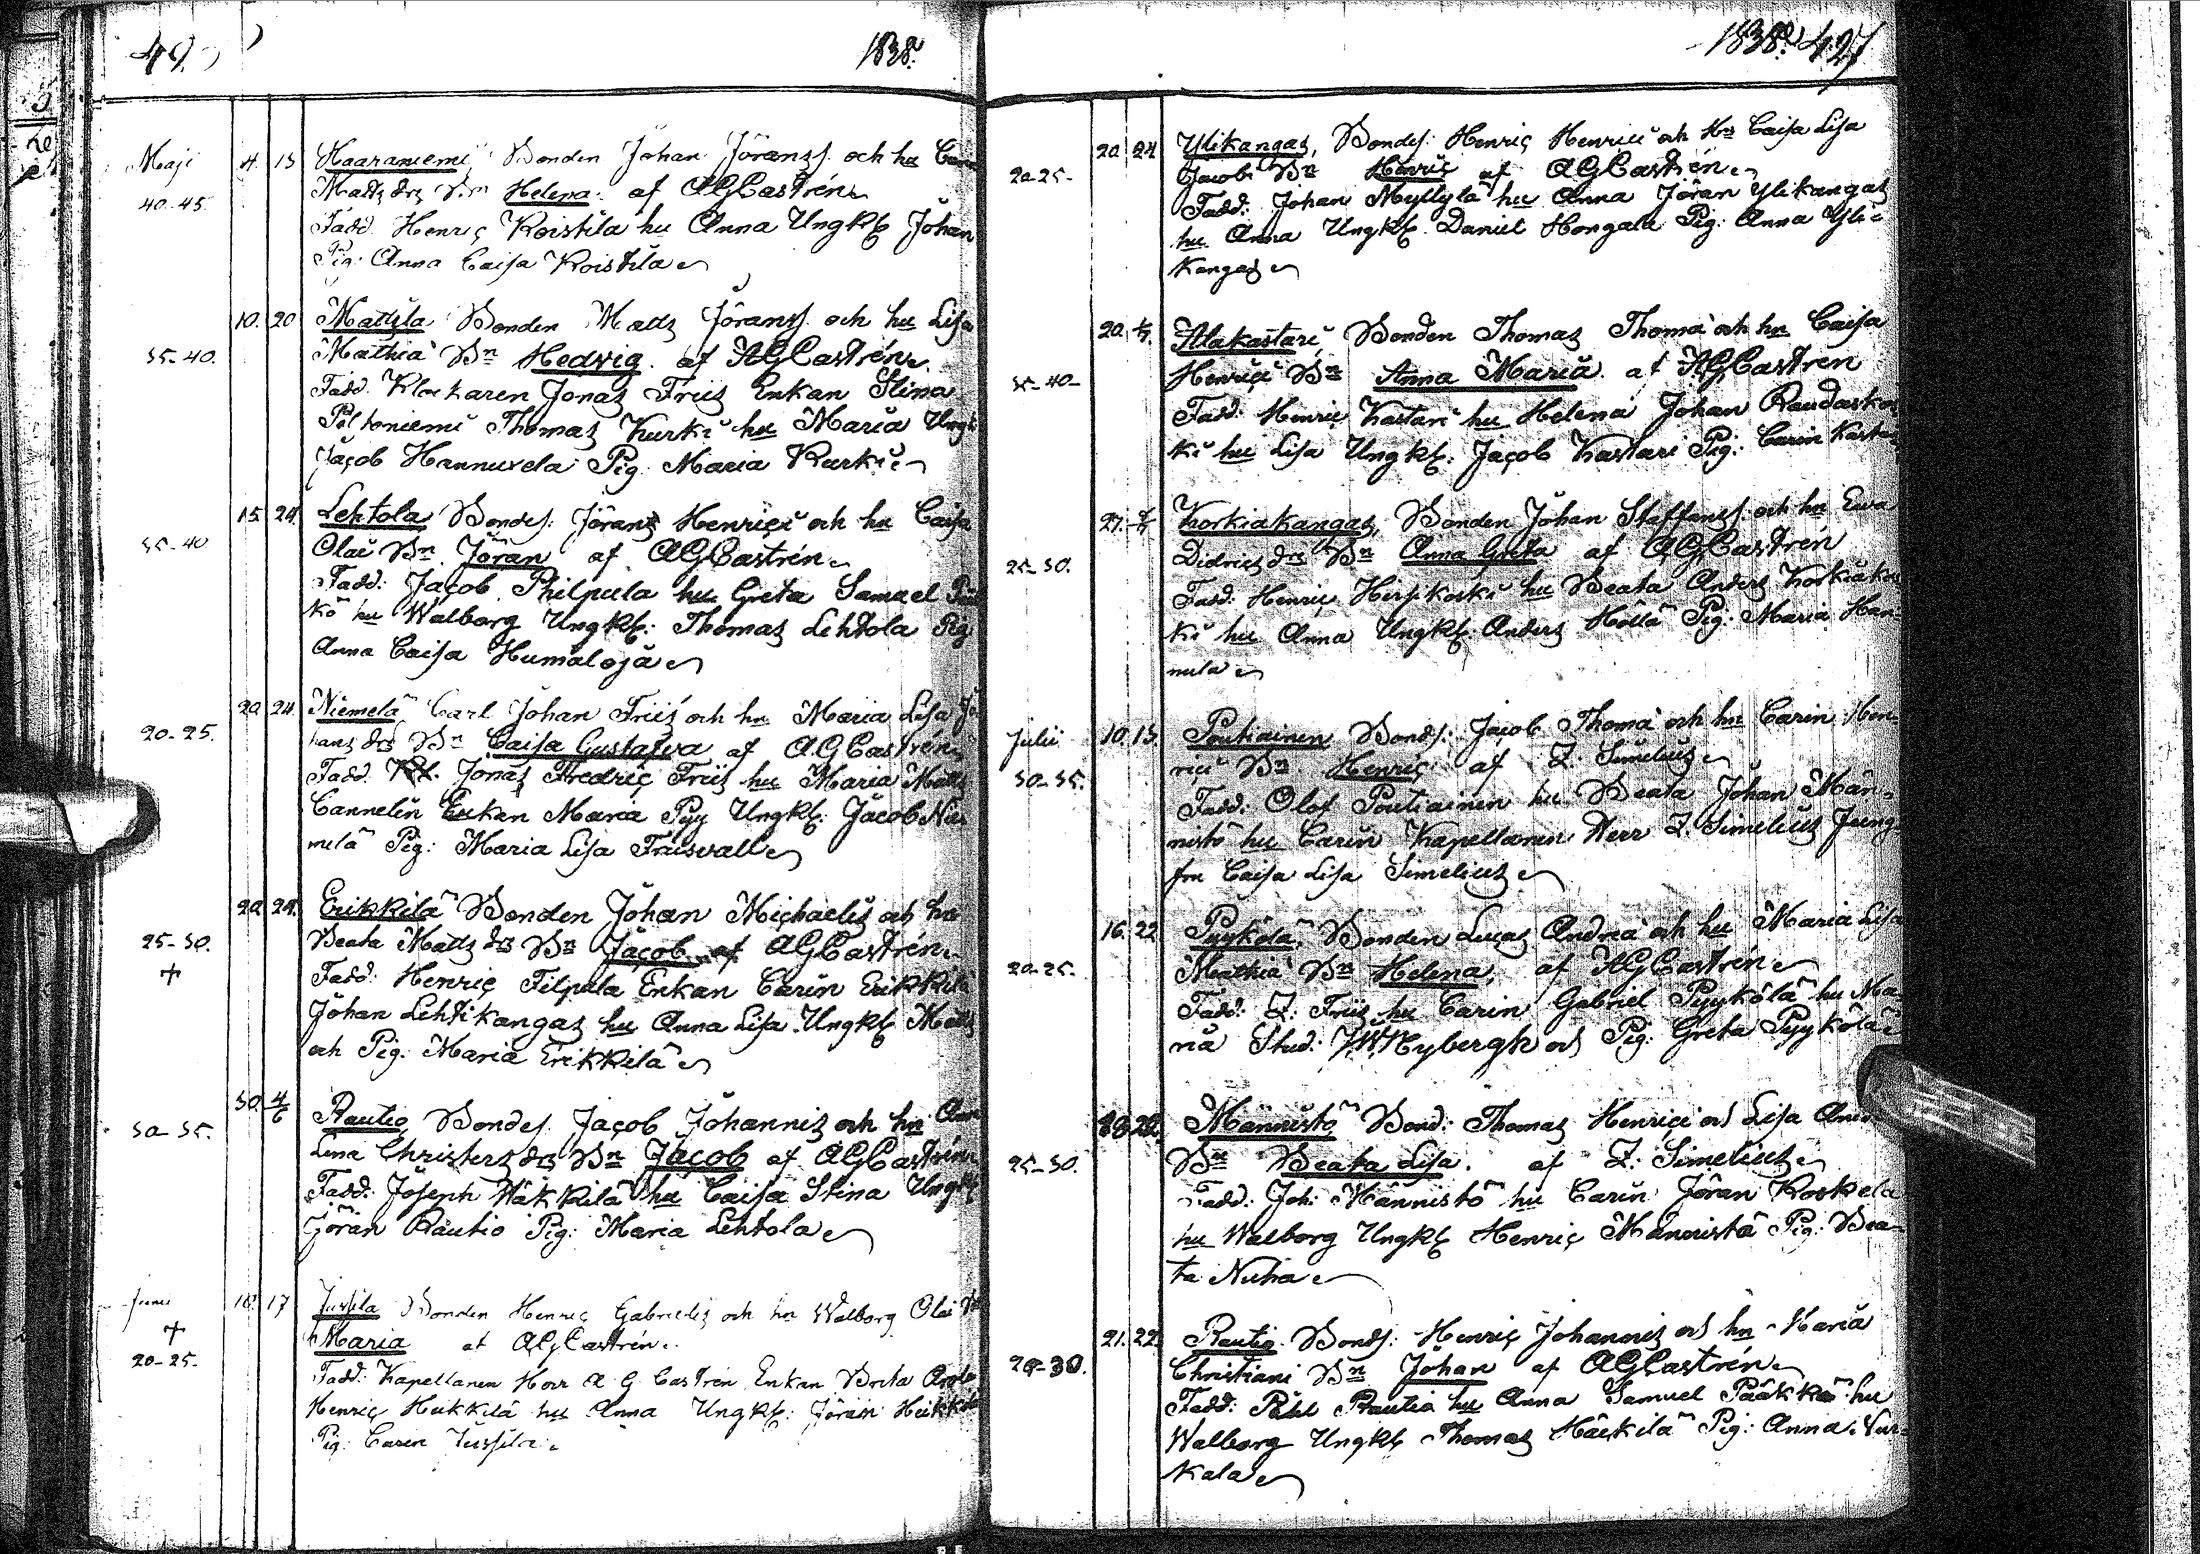 1838.
Maji 4. 13 Haaraniemi Bonden Johan Jöransş. och hu
Matts drs Bn Helena. af AGCastrén
40-45.
Fadd. Henriç Koistila hu Anna Ungkl Johan
Pig: Anna Caisa Koistila
10. 20 Mattila Bonden Matts Jöransş. och hu Lisa
35-40. Mathiæ Bn Hedwig. af AGCastrén
Fadd. Klockaren Jonas Friis Enkan Stina
Poltoniemi Thomas Kurki hu Maria
Jacob Hannuxela Pig. Maria Kurki
15. 24 Lehtola Bondes. Jörans Henriçi och hu Caisa
35-40 Olai Bn Jöran af AGCastrén
Fadd: Jacob Philpula hu Greta Samuel
kö hu Walborg Ungkl: Thomas Lehtola Pig
Anna Caisa Humaloja
20. 24. Niemelä Carl Johan Friis och hu Maria Lisa Jo
20-25. hans drs Bn Caisa Gustafva af AGCastrén
Fadd. Jonas Fredriç Friis hu Maria Matts
Cannelin Enkan Maria Pyy Ungkl. Jacob Nie
melä Pig: Maria Lisa Friisvall
20. 24. Erikkilä Bonden Johan Michaelis och hu
25-30. Beata Matts drs Bn Jacob af AGCastrén
+
Fadd: Henriç Filpula Enkan Carin Erikkilä
Johan Lehtikangas hu Anna Lisa Ungkl Matts
och Pig: Maria Erikkilä
30. 4/6 Rautio, Bondes. Jacob Johannis och hu
30-35. Lena Christers drs Bn Jacob af AGCastrén
Fadd: Joseph Häkkilä hu Caisa Stina Ungkl
Jöran Rautio Pig: Maria Lehtola
Junii 16. 17 Jussila Bonden Henriç Gabrielis och hu Walborg Olai
+ Maria af AGCastrén
20-25. Fadd: Kapellanen Herr A G Castrén Enkan Brita
Henriç Heikkilä hu Anna Ungkl: Jöran Heikkilä
Pig: Carin Jussila
1838. 427
20. 24 Ylikangas, Bondes: Henriç Henrici och Hu Caisa Lisa
20-25- Jacobi Bn Henriç af AGCastrén
Fadd: Johan Myllylä hu Anna Jöran Ylikangas
hu Anna Ungkl. Daniel Hongala Pig: Anna Yli-
kangas
20. Alakastari, Bonden Thomas Thomæ och hu Caisa
35-40- Henrici Bn Anna Maria. af AGCastrén
Fadd: Henric Kastari hu Helena Johan Raudasko
ki hu Lisa Ungkl: Jacob Kastari Pig: Carin
27. Korkiakangas, Bonden Johan Staffansş. och hu Ewa
25-30. Didrics drs Bn Anna Greta af AGCastrén
Fadd: Henriç Hirsikoski hu Beata Anders
ki hu Anna Ungkl: Anders Höllä Pig: Maria Han-
nula
Julii 10. 15. Poutiainen Bonds: Jacob Thomæ och hu Carin Hen-
30-35. rici Bn Henriç af Z. Simelius
Fadd: Olof Poutiainen hu Beata Johan Män-
nistö hu Carin Kapellanen Herr Z. Simelius Jung-
fru Caisa Lisa Simelius
16. 22 Pyykölä, Bonden Lucas Andreæ och hu Maria Lisa
20-25. Mathiæ Bn Helena, af AGCastrén
Fadd: Z. Friis hu Carin Gabriel Pyykölä hu Ma-
ria Stud: Nybergh och Pig: Greta Pyykölä
22. Männistö Bond: Thomas Henrici och Lisa
25-30. Bn Beata Lisa. af Z: Simelius
Fadd: Joh: Männistö hu Carin Jöran Koskela
hu Walborg Ungkl Henriç Männistö Pig: Bea-
ta Niha
21. 22. Rautio. Bonds: Henriç Johannis och hu Maria
20-30. Christiani Bn Johan af AGCastrén
Fadd: Påhl Rautio hu Anna Samuel Pääkkö hu
Walborg Ungkl Thomas Häkkilä Pig: Anna
kala